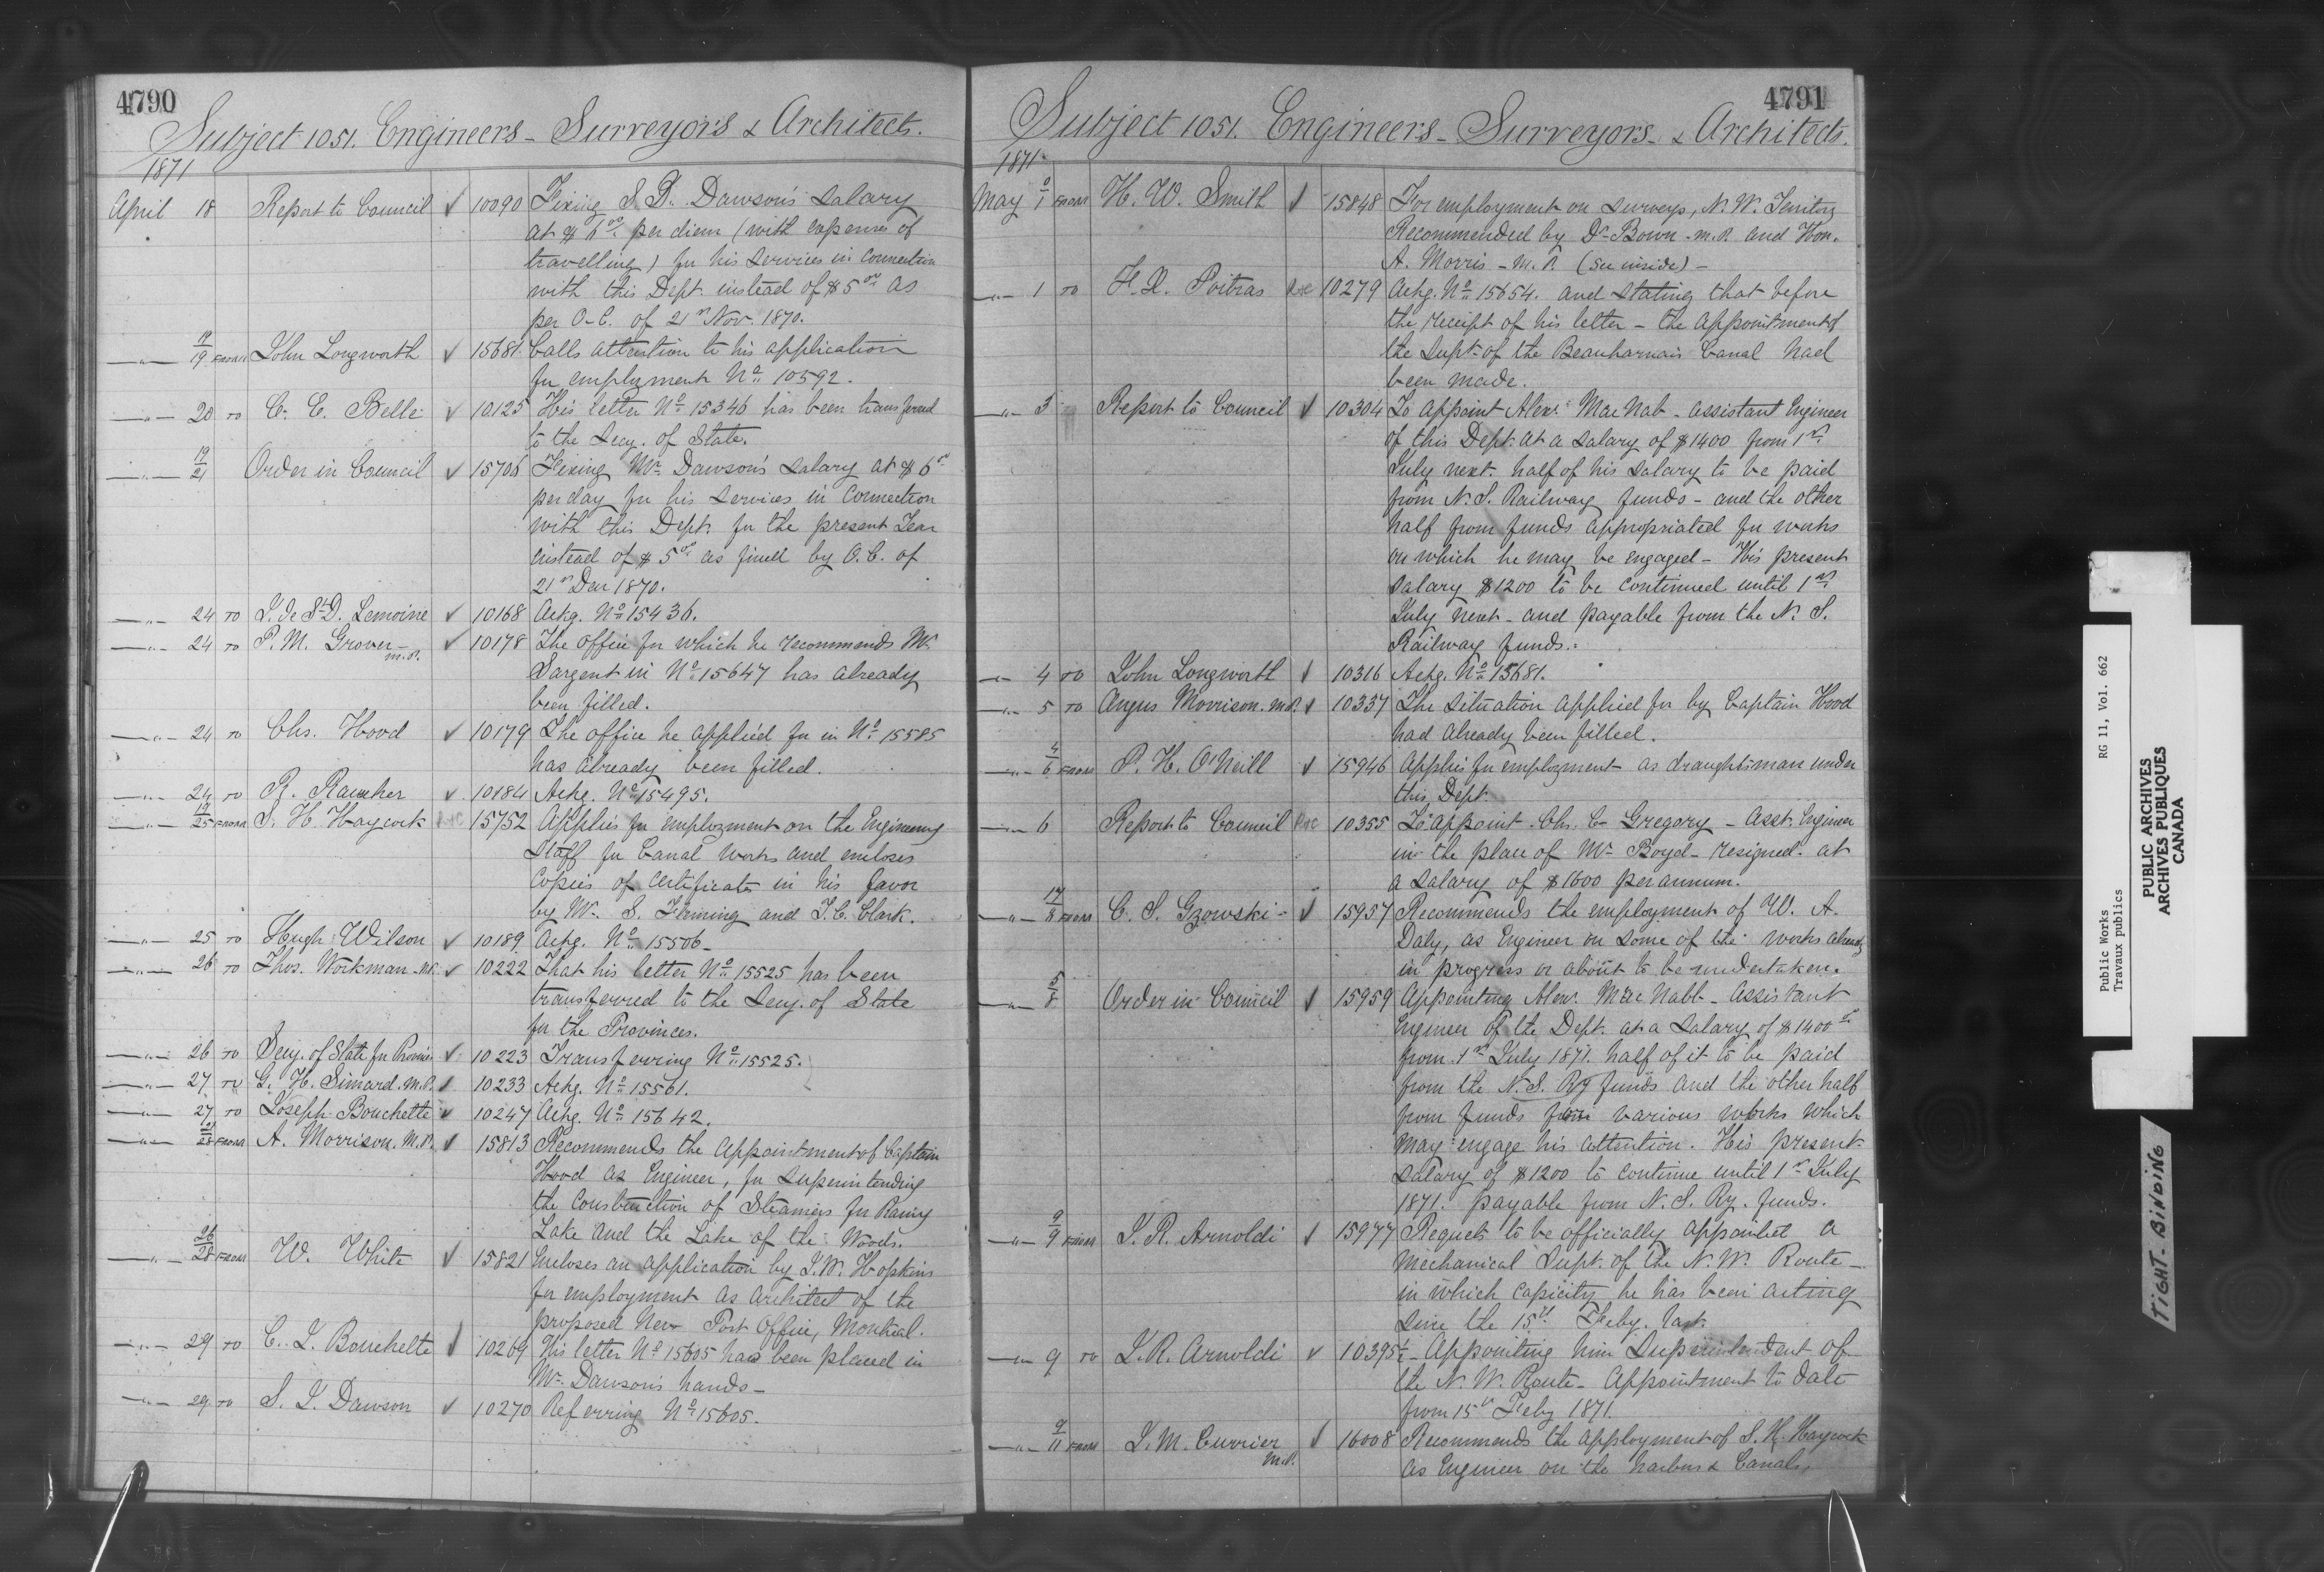 4790
Subject 1051. Engineers - Surveyors & Architects.
1871
April 18 Report to Council ✓ 10090 Fixing S. D. Dawson's salary
at $6 00 per diem (with expenses of
travelling) for his services in connection
with this Dept. instead of $5 00 as
per O-C. of 21st Nov. 1870.
—"— 19 FROM John Longworth ✓ 15681. Calls attention to his application
for employment No. 10592.
—"— 20 TO C. E. Belle ✓ 10125 His letter No. 15346 has been transferred
to the Secy. of State.
—"— 19/21 Order in Council ✓ 15706 Fixing Mr. Dawson's salary at $6 00
per day for his services in connection
with this Dept. for the present Year
instead of $5 00 as fixed by O.C. of
21st 1870.
—"— 24 TO J. de St D. Lemoine ✓ 10168 Ackg. No. 15436.
—"— 24 TO P. M. Grover M.P. ✓ 10178 The office for which he recommends Mr.
Sargent in No. 15647 has already
been filled.
—"— 24 TO Chs. Hood ✓ 10179 The office he applied for in No. 15585
has already been filled.
—"— 24 TO R. ✓ 10184 Ackg. No. 15495.
—"— 19/25 FROM S. H. Haycock 15752 Applies for employment on the Engineering
Staff for Canal Works and encloses
copies of certificates in his favor
by Mr. S. Fleming and T. C. Clark.
—"— 25 TO Hugh Wilson ✓ 10189 Ackg. No. 15506 -
—"— 26 TO Thos. Workman M.P. ✓ 10222 That his letter No. 15525 has been
transferred to the Secy. of State
for the Provinces.
—"— 26 TO Secy. of State for Provinces ✓ 10223 Transferring No. 15525.
—"— 27 TO G. H. Simard. M.P. ✓ 10233 Ackg. No. 15561.
—"— 27 TO Joseph Bouchette ✓ 10247 Ackg. No. 15642.
—"— 28 FROM A. Morrison. M.P. ✓ 15813 Recommends the appointment of Captain
Hood as Engineer, for superintending
the construction of Steamers for Rainy
Lake and the Lake of the Woods.
—"— 26/28 FROM W. White ✓ 15821 Encloses an application by J. W. Hopkins
for employment as architect of the
proposed New Post Office, Montreal.
—"— 29 TO C. J. Bouchette ✓ 10269 His letter No. 15605 has been placed in
Mr. Dawson's hands -
—"— 29 TO S. J. Dawson ✓ 10270 Referring No. 15605.
4791
Subject 1051. Engineers - Surveyors - & Architects.
1871
May 1 FROM H. W. Smith ✓ 15848 For employment on surveys, N. W. Territory
Recommended by Dr. Bown - M.P. and Hon.
A. Morris - M.P. (see inside) -
—"— 1 TO F. X. Poitras 10279 Ackg. No. 15654. and stating that before
the receipt of his letter - the appointment of
the Supt. of the Beauharnais Canal had
been made.
—"— 3 Report to Council ✓ 10304 To appoint Alexr. MacNab - assistant Engineer
of this Dept. at a salary of $1400 from 1st
July next. half of his salary to be paid
from N. S. Railway funds - and the other
half from funds appropriated for works
on which he may be engaged - His present
salary $1200 to be continued until 1st
July next - and payable from the N. S.
Railway funds.
—"— 4 TO John Longworth ✓ 10316 Ackg. No. 15681.
—"— 5 TO Angus Morrison. M.P. ✓ 10337 The situation applied for by Captain Hood
had already been filled.
—"— 4/6 FROM P. H. O'Neill ✓ 15946 Applies for employment as draughtsman under
this Dept.
—"— 6 Report to Council 10355 To appoint Chs. C. Gregory - Asst. Engineer
in the place of Mr. Boyd - resigned - at
a salary of $1600 per annum.
—"— 17/8 FROM C. S. Gzowski - ✓ 15957 Recommends the employment of W. A.
Daly, as Engineer on some of the works already
in progress or about to be undertaken.
—"— 5/8 Order in Council ✓ 15959 Appointing Alexr. MacNabb - Assistant
Engineer of the Dept. at a salary of $1400 00
from 1st July 1871. half of it to be paid
from the N. S. Ry funds and the other half
from funds from various works which
may engage his attention. His present
salary of $1200 to continue until 1st July
1871. payable from N. S. Ry. funds.
—"— 9/9 FROM J. R. Arnoldi ✓ 15977 Requests to be officially appointed a
mechanical Supt. of the N. W. Route -
in which capicity he has been acting
since the 15th Feby. last.
—"— 9 TO J. R. Arnoldi ✓ 10395½ - Appointing him Superintendent of
the N. W. Route - Appointment to date
from 15th Feby 1871.
—"— 9/11 FROM J. M. Currier M.P. ✓ 16008 Recommends the apployment of S. H. Haycock
as Engineer on the harbors & Canals.
Public Works RG 11, Vol. 662
Travaux publics
PUBLIC ARCHIVES
ARCHIVES PUBLIQUES
CANADA
TIGHT BINDING